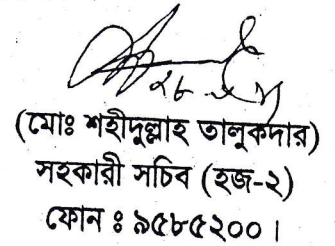 (মোঃ শহীদুল্লাহ তালুকদার)
সহকারী সচিব (হজ-২)
ফোন ঃ ৯৫৮৫২০০।